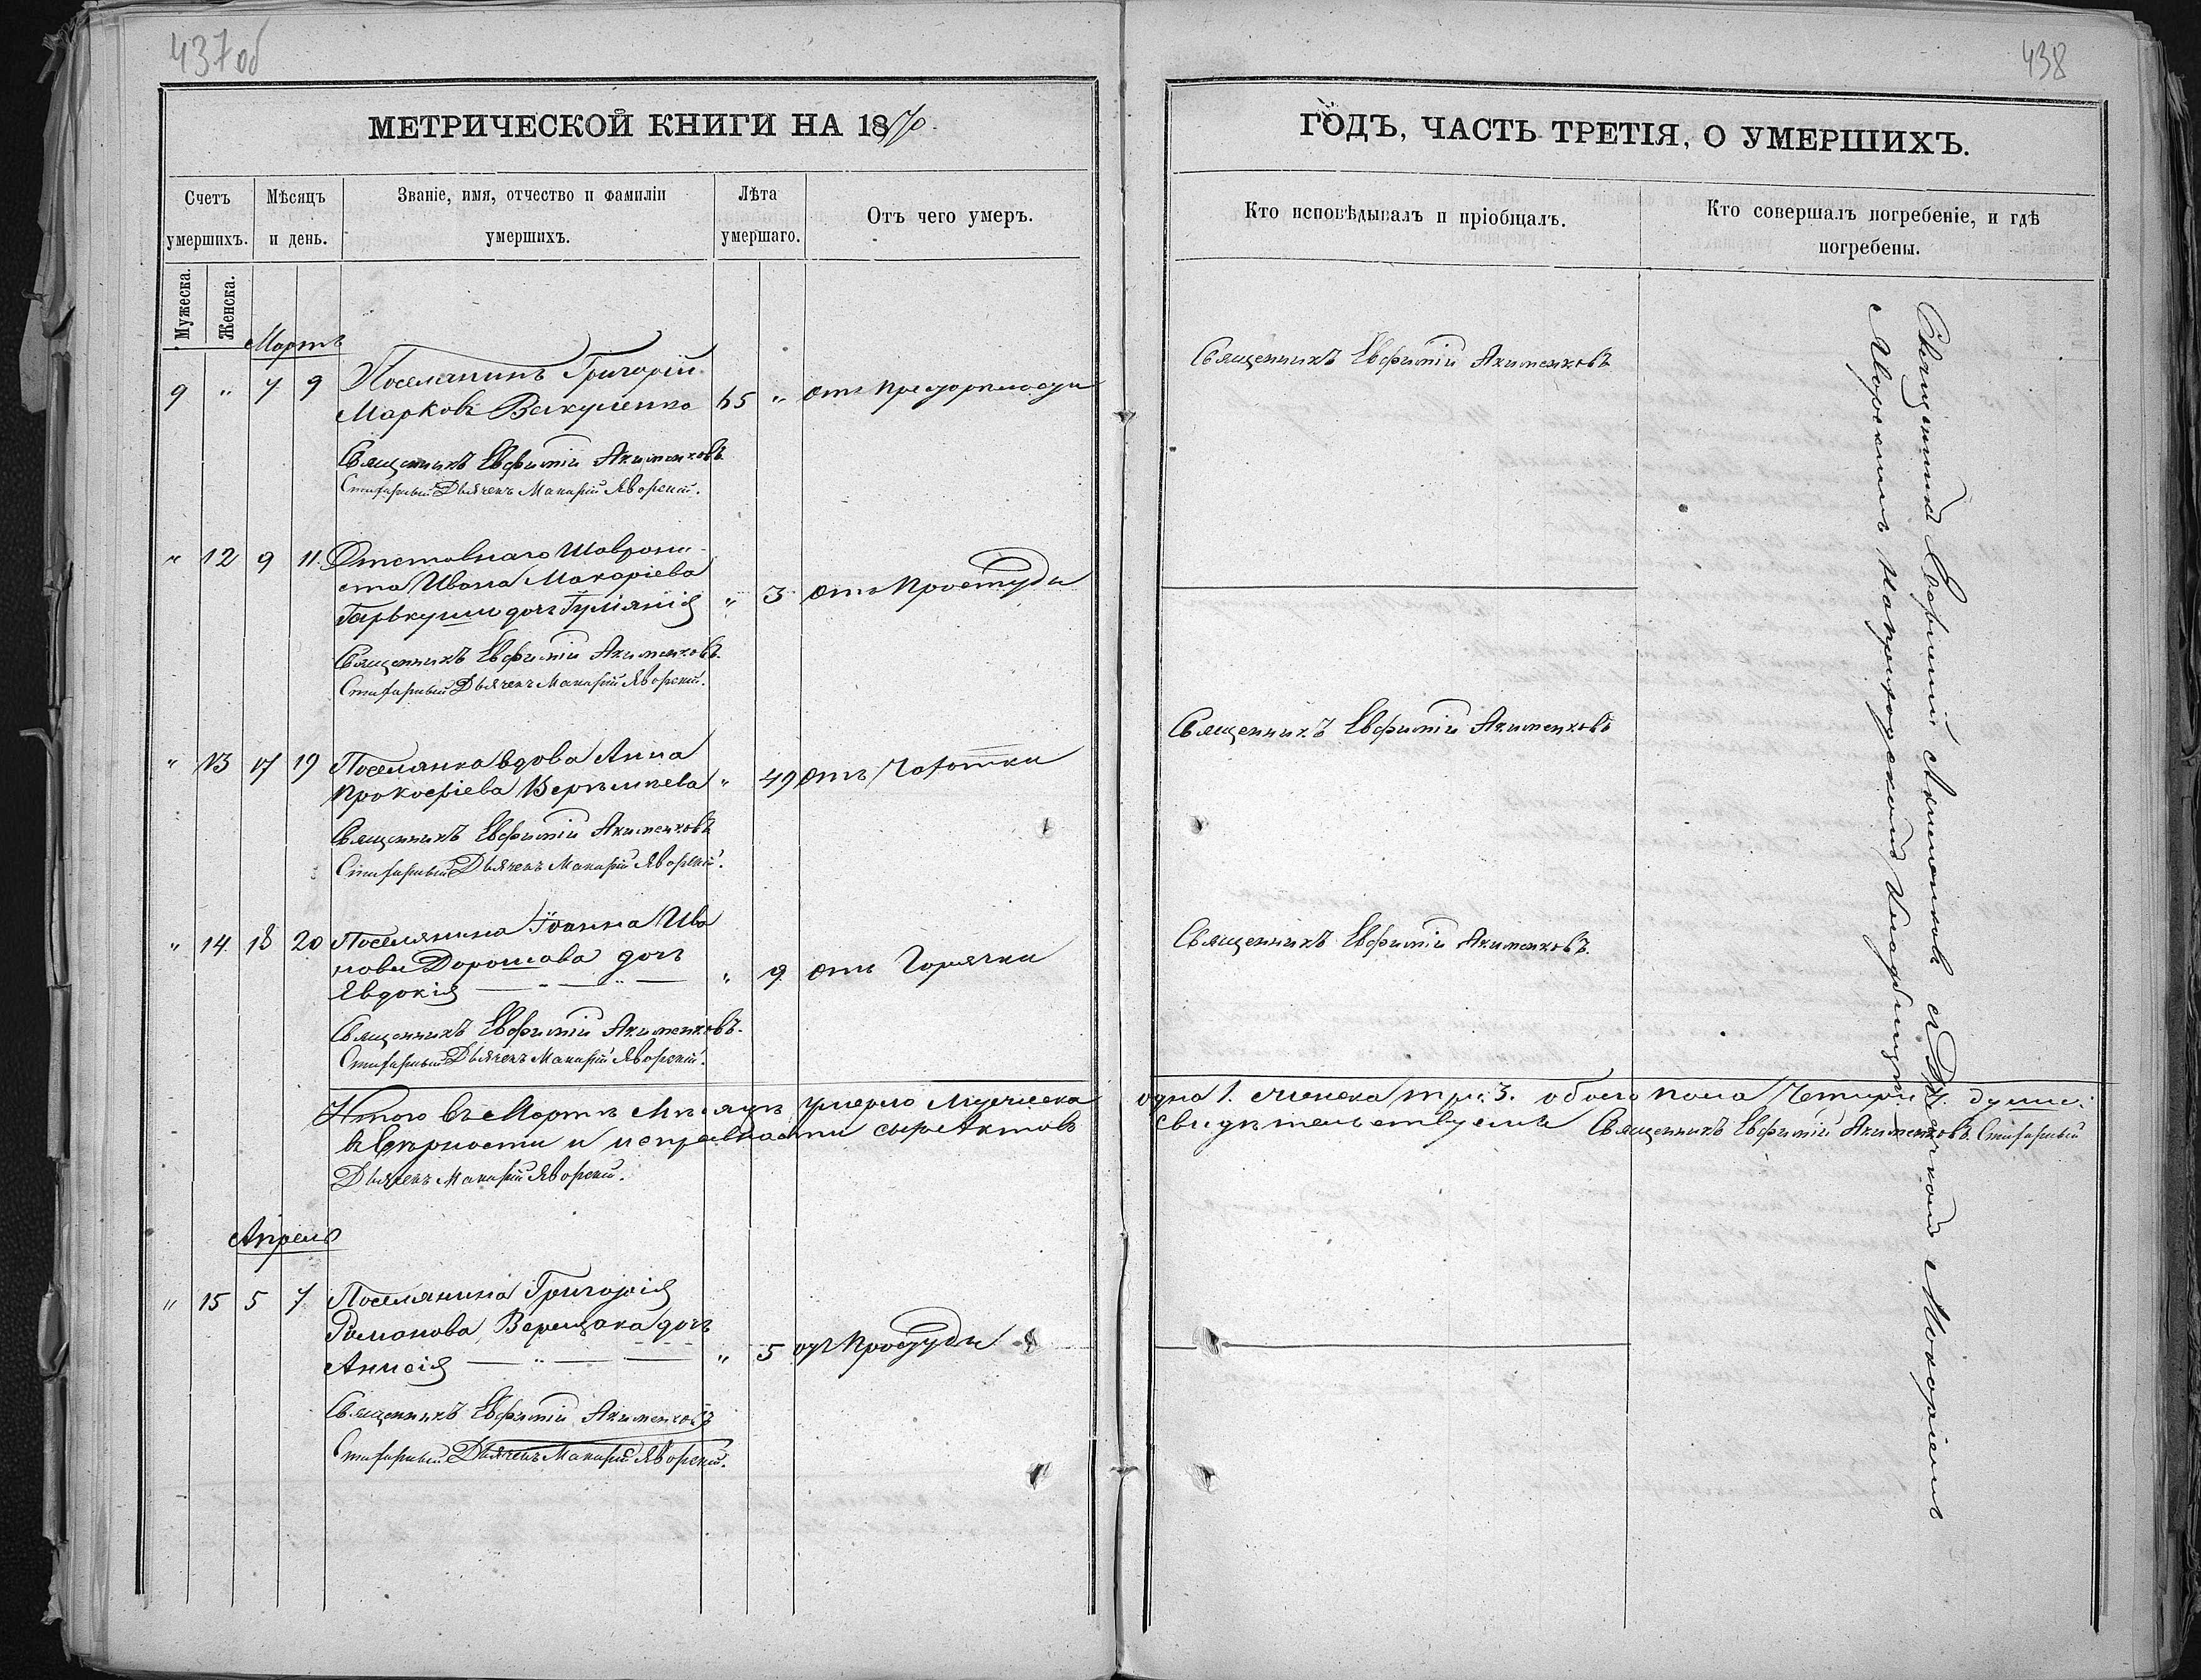 437 об
МЕТРИЧЕСКОЙ КНИГИ НА 1870
Счетъ умершихъ.
Мѣсяцъ и день.
Званіе, имя, отчество и фамиліи умершихъ.
Лѣта умершаго.
Отъ чего умеръ.
Мужеска.
Женска.
Мартъ
9 " 7 9 Поселянинъ Григорій
Марковъ Вакуленко 65 " отъ
Священникъ Евфимій Акименковъ
Стихарный Дьячекъ Макарій Яворскій.
" 12 9 11 Отставнаго
ста Ивана Макаріева
Гарькуши дочь " 3 отъ Простуды
Священникъ Евфимій Акименковъ.
Стихарный Дьячекъ Макарій Яворскій.
" 13 17 19 Поселянка вдова Анна
Прокофіева " 49 отъ Чахотки
Священникъ Евфимій Акименковъ
Стихарный Дьячекъ Макарій Яворскій.
" 14 18 20 Поселянина Іоанна Ива
нова Дорошова дочь
Евдокія " 9 отъ Горячки
Священникъ Евфимій Акименковъ.
Стихарный Дьячекъ Макарій Яворскій.
Итого въ Мартѣ Мѣсяцѣ умерло Мужеска
въ Вѣрности и исправности сихъ Актовъ
Дьячекъ Макарій Яворскій.
Апрель
" 15 5 7 Поселянина Григорія
Романова Верещака дочь
Анисія " 5 отъ Простуды
Священникъ Евфимій Акименковъ
Стихарный Дьячекъ Макарій Яворскій.
438
ГОДЪ, ЧАСТЬ ТРЕТІЯ, О УМЕРШИХЪ.
Кто исповѣдывалъ и пріобщалъ.
Кто совершалъ погребеніе, и гдѣ погребены.
Священникъ Евфимій Акименковъ
Священникъ Евфимій Акименковъ
Священникъ Евфимій Акименковъ.
одна 1. Женска три 3. обоего пола Четыри 4. души:
свидѣтельствуемъ Священникъ Евфимій Акименковъ. Стихарный
Священникъ Евфимій Акименковъ съ Дьячкомъ Макаріемъ
Яворскимъ на приходскомъ Кладбищи